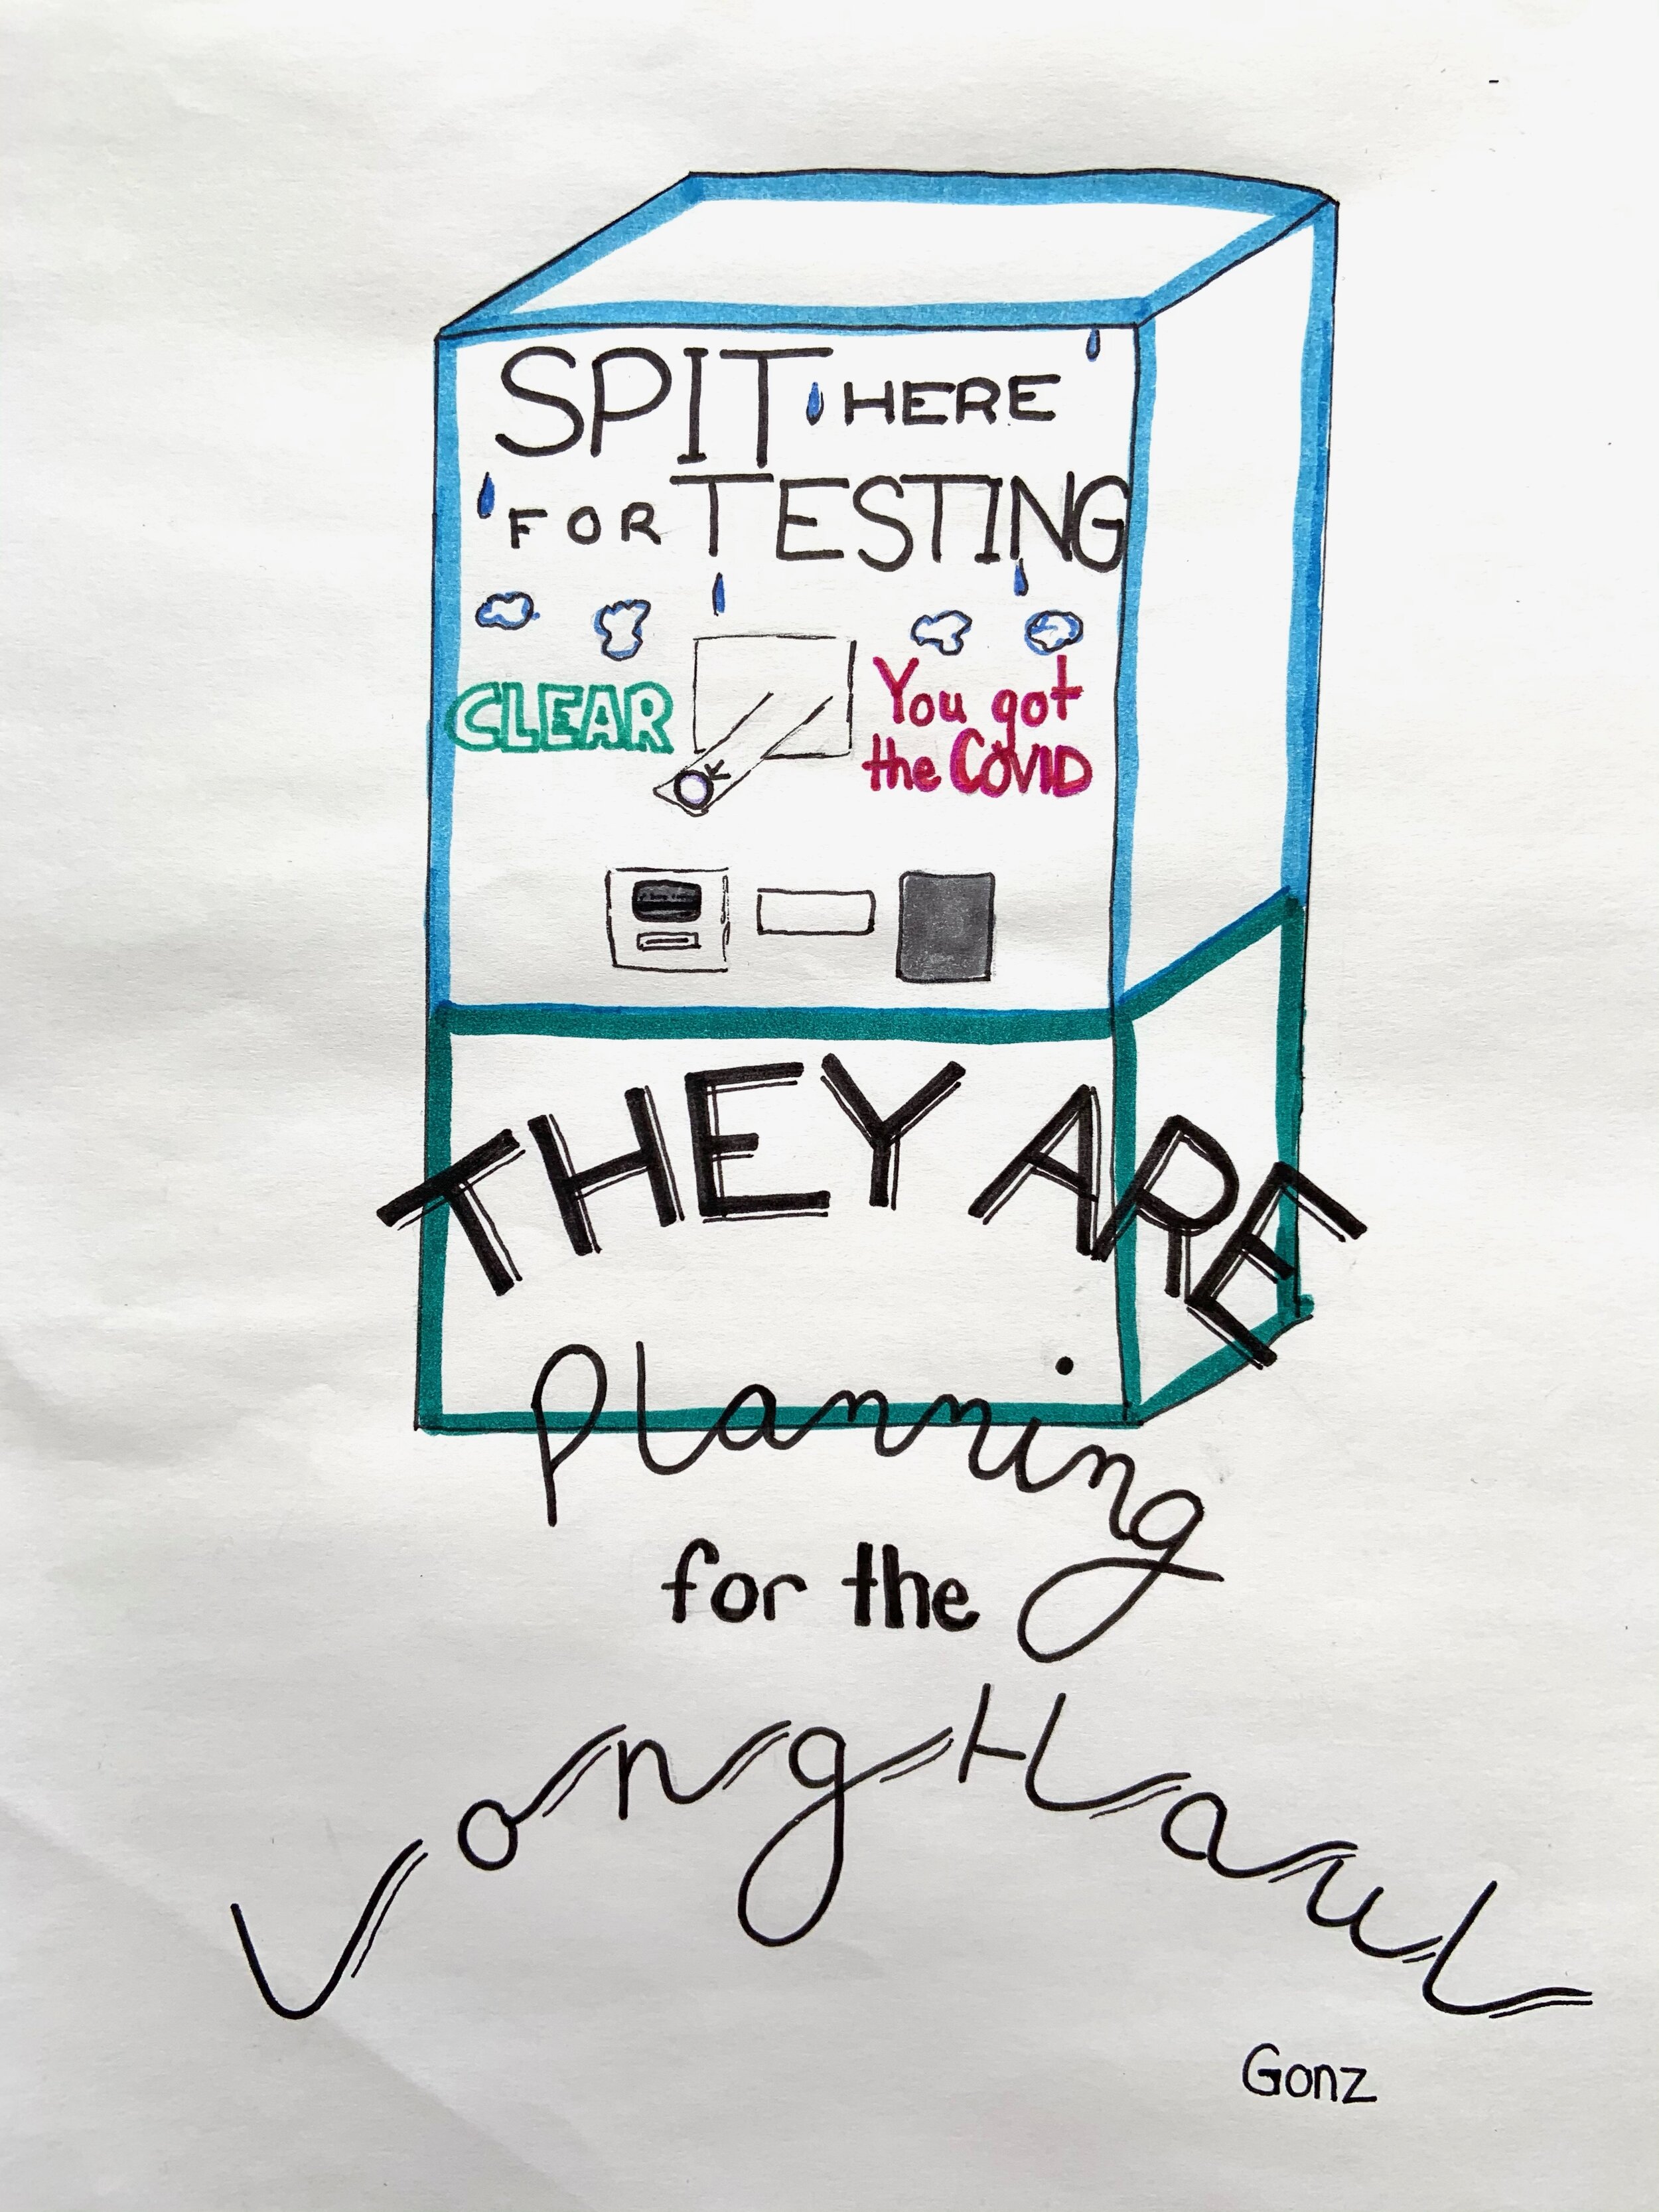 SPIT HERE
FOR TESTING
CLEAR
You got
the COVID
THEY ARE
Planning
for the
Long Haul
Gonz